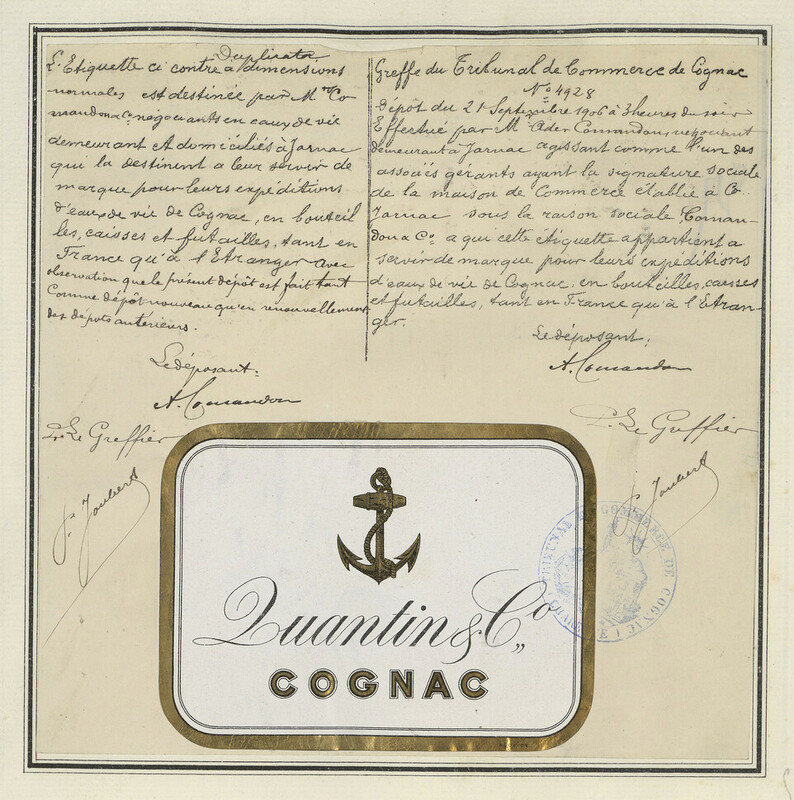 Duplicata
L'Etiquette ci contre à dimensions
normales est destinée par Mrs Co
mandon & Co négociants en eaux de vie
demeurant et domiciliés à Jarnac
qui la destinent a leur servir de
marque pour leurs expéditions
d'eaux de vie de Cognac, en bouteil
les, caisses et futailles, tant en
France qu'à l'Etranger avec
observation que le présent dépôt est fait tant
comme dépôt nouveau qu'en renouvellement
des dépôts antérieurs.
Le déposant:
A. Comandon
Pr. Le Greffier
P. Joubert
Greffe du Tribunal de Commerce de Cognac
No 4928
Dépôt du 21 Septembre 1906 à 3 heures du soir
Effectué par Mr Ader Comandon, négociant
demeurant à Jarnac agissant comme l'un des
associés gérants ayant la signature sociale
de la maison de Commerce établie à
Jarnac sous la raison sociale Coman-
don & Co. a qui cette étiquette appartient a
servir de marque pour leurs expéditions
d'eaux de vie de Cognac, en bouteilles, caisses
et futailles, tant en France qu'à l'Etran-
ger.
Le déposant:
A. Comandon
Pr. Le Greffier
P. Joubert
Quantin & Co
COGNAC
TRIBUNAL DE COMMERCE DE COGNAC